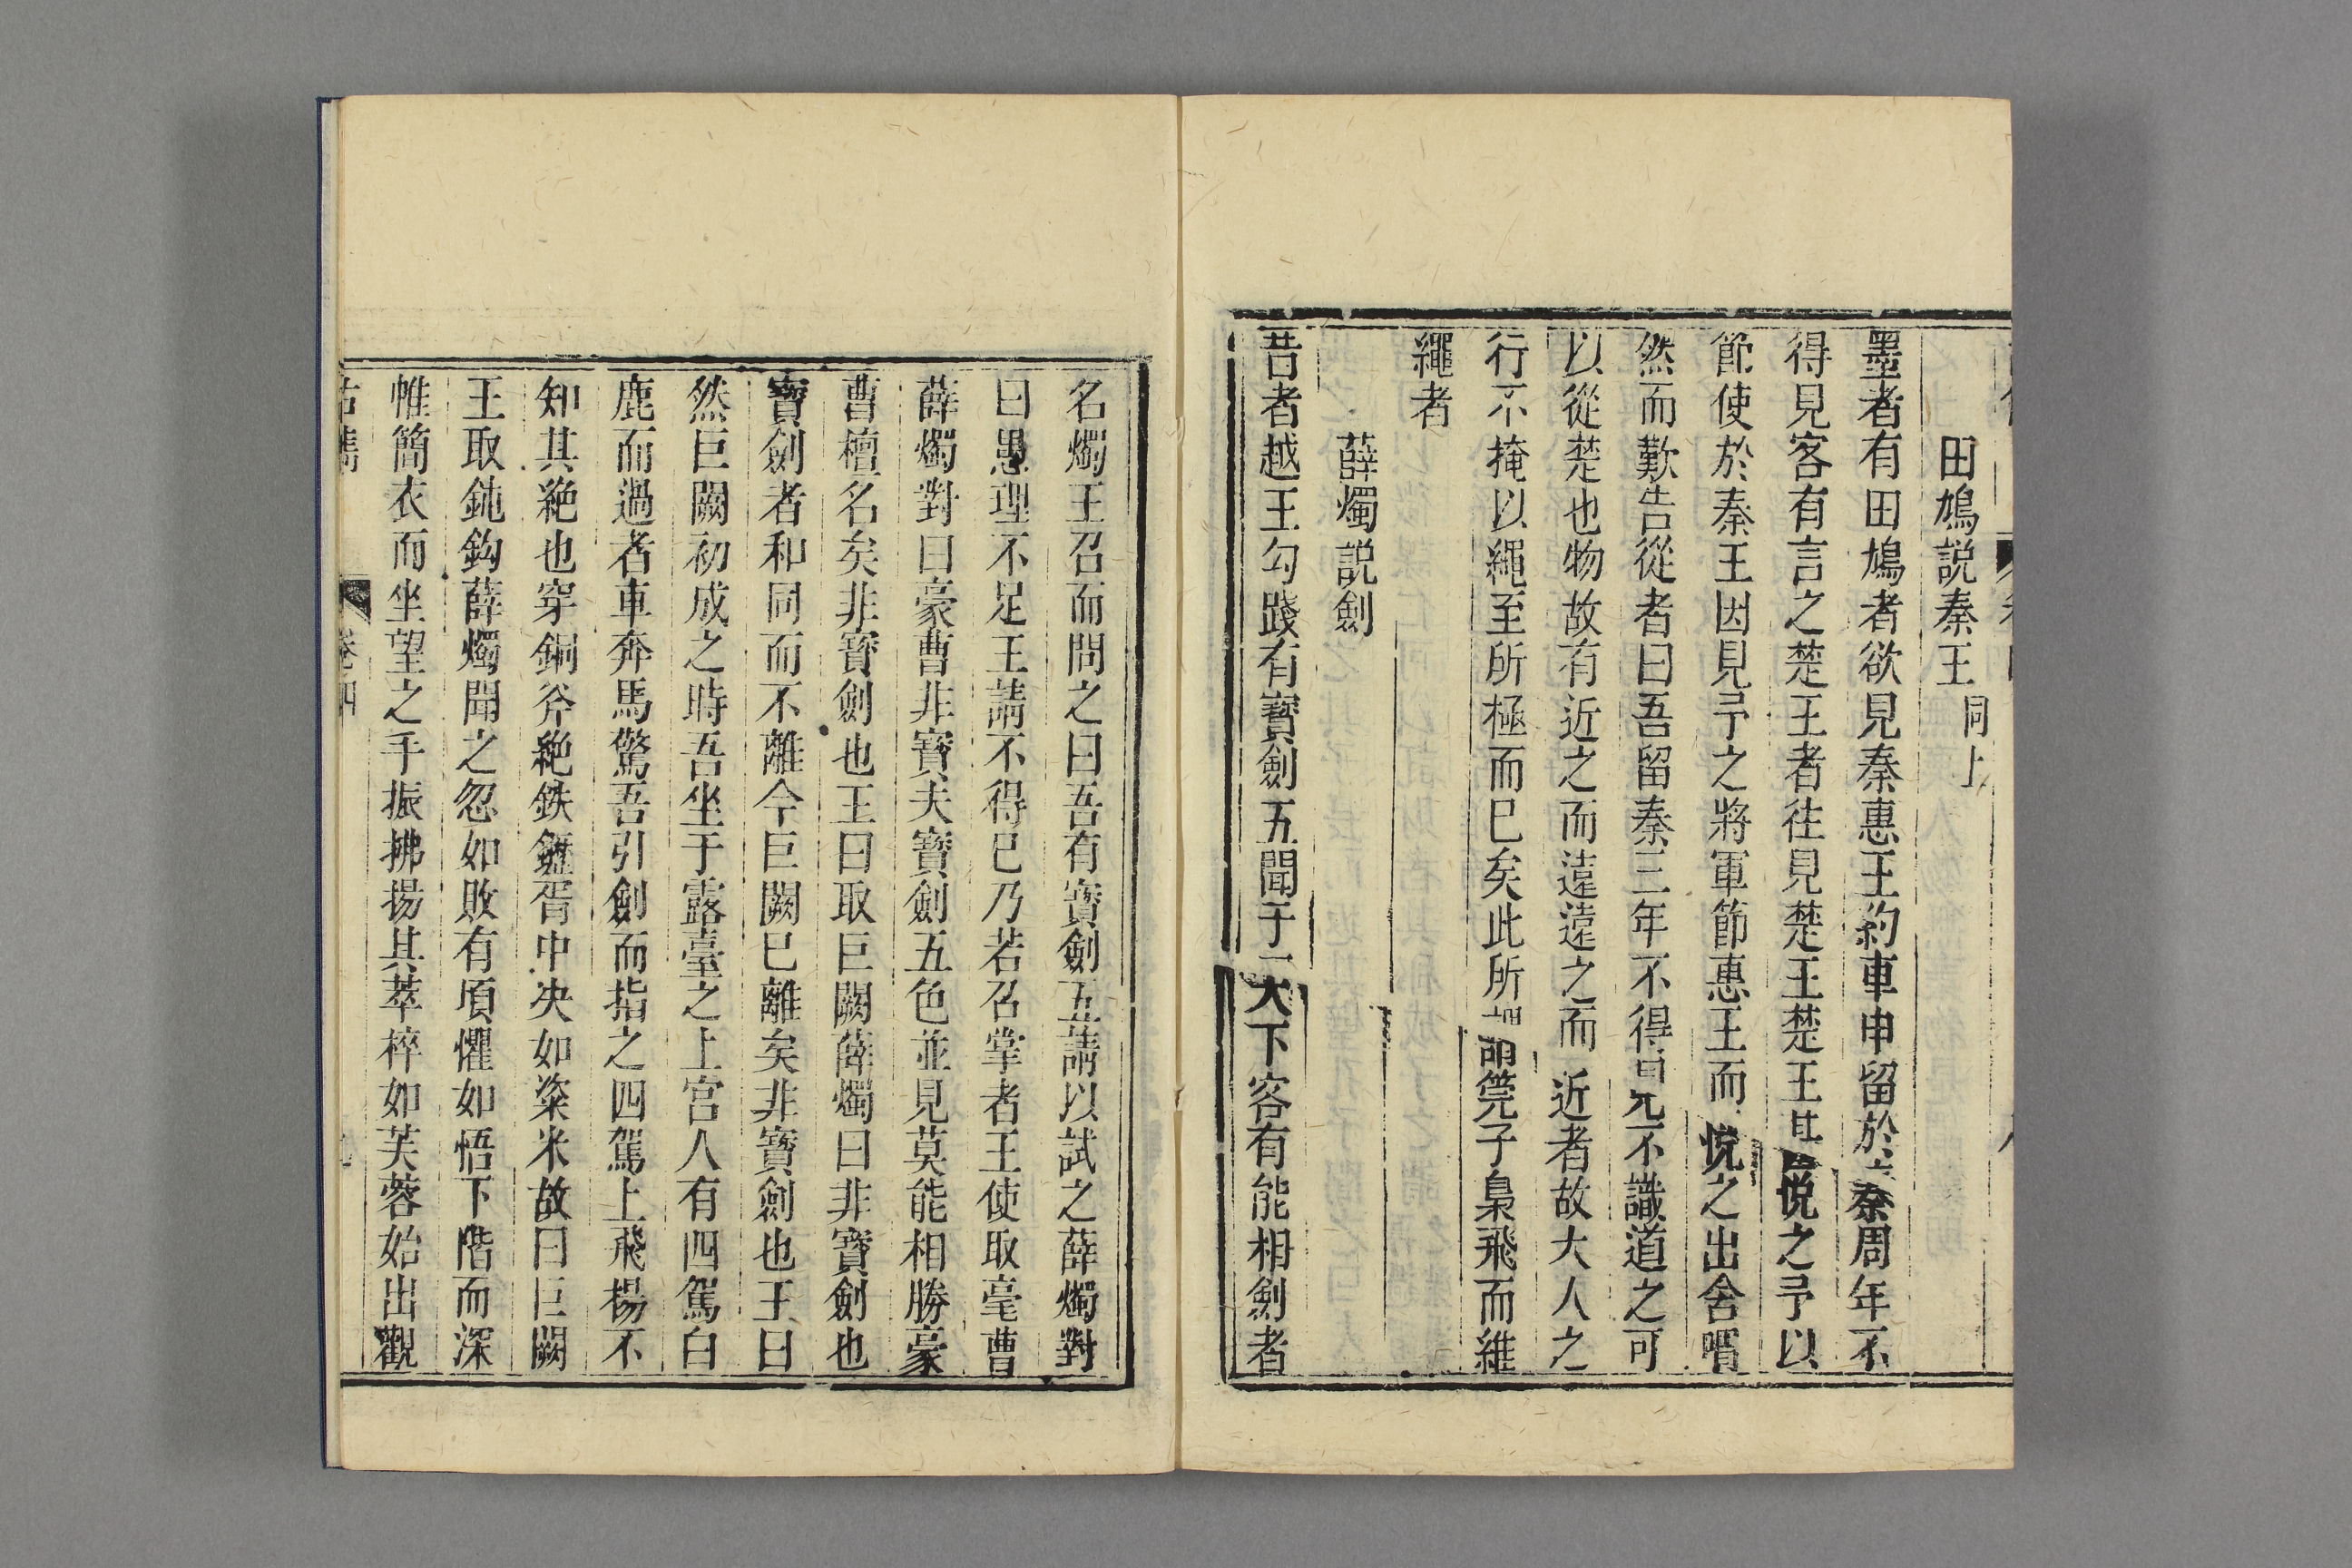 田鳩説秦王 同上
墨者有田鳩者欲見秦惠王約車申留於秦周年不
得見客有言之楚王者往見楚王楚王甚悅之予以
節使於秦王因見予之將軍節惠王而悅之出舍喟
然而歎告從者曰吾留秦三年不得見不識道之可
以從楚也物故有近之而遠遠之而近者故大人之
行不掩以繩至所極而已矣此所謂筦子梟飛而維
繩者
薛燭説劍
昔者越王勾踐有寶劍五聞于天下客有能相劍者
名燭王召而問之曰吾有寶劍五請以試之薛燭對
曰愚理不足王請不得已乃若召掌者王使取毫曹
薛燭對曰豪曹非寶夫寶劍五色並見莫能相勝豪
曹檀名矣非寶劍也王曰取巨闕薛燭曰非寶劍也
寶劍者和同而不離今巨闕已離矣非寶劍也王曰
然巨闕初成之時吾坐于露臺之上宮人有四駕白
鹿而過者車奔馬驚吾引劍而指之四駕上飛楊不
知其絶也穿銅斧絶鉄鑪胥中决如粢米故曰巨闕
王取鈍鈎薛燭聞之忽如敗有頃懼如悟下階而深
惟簡衣而坐望之手振拂揚其萃椊如芙蓉始出觀
卷四